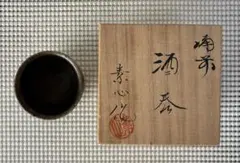 備前
酒呑
素心作